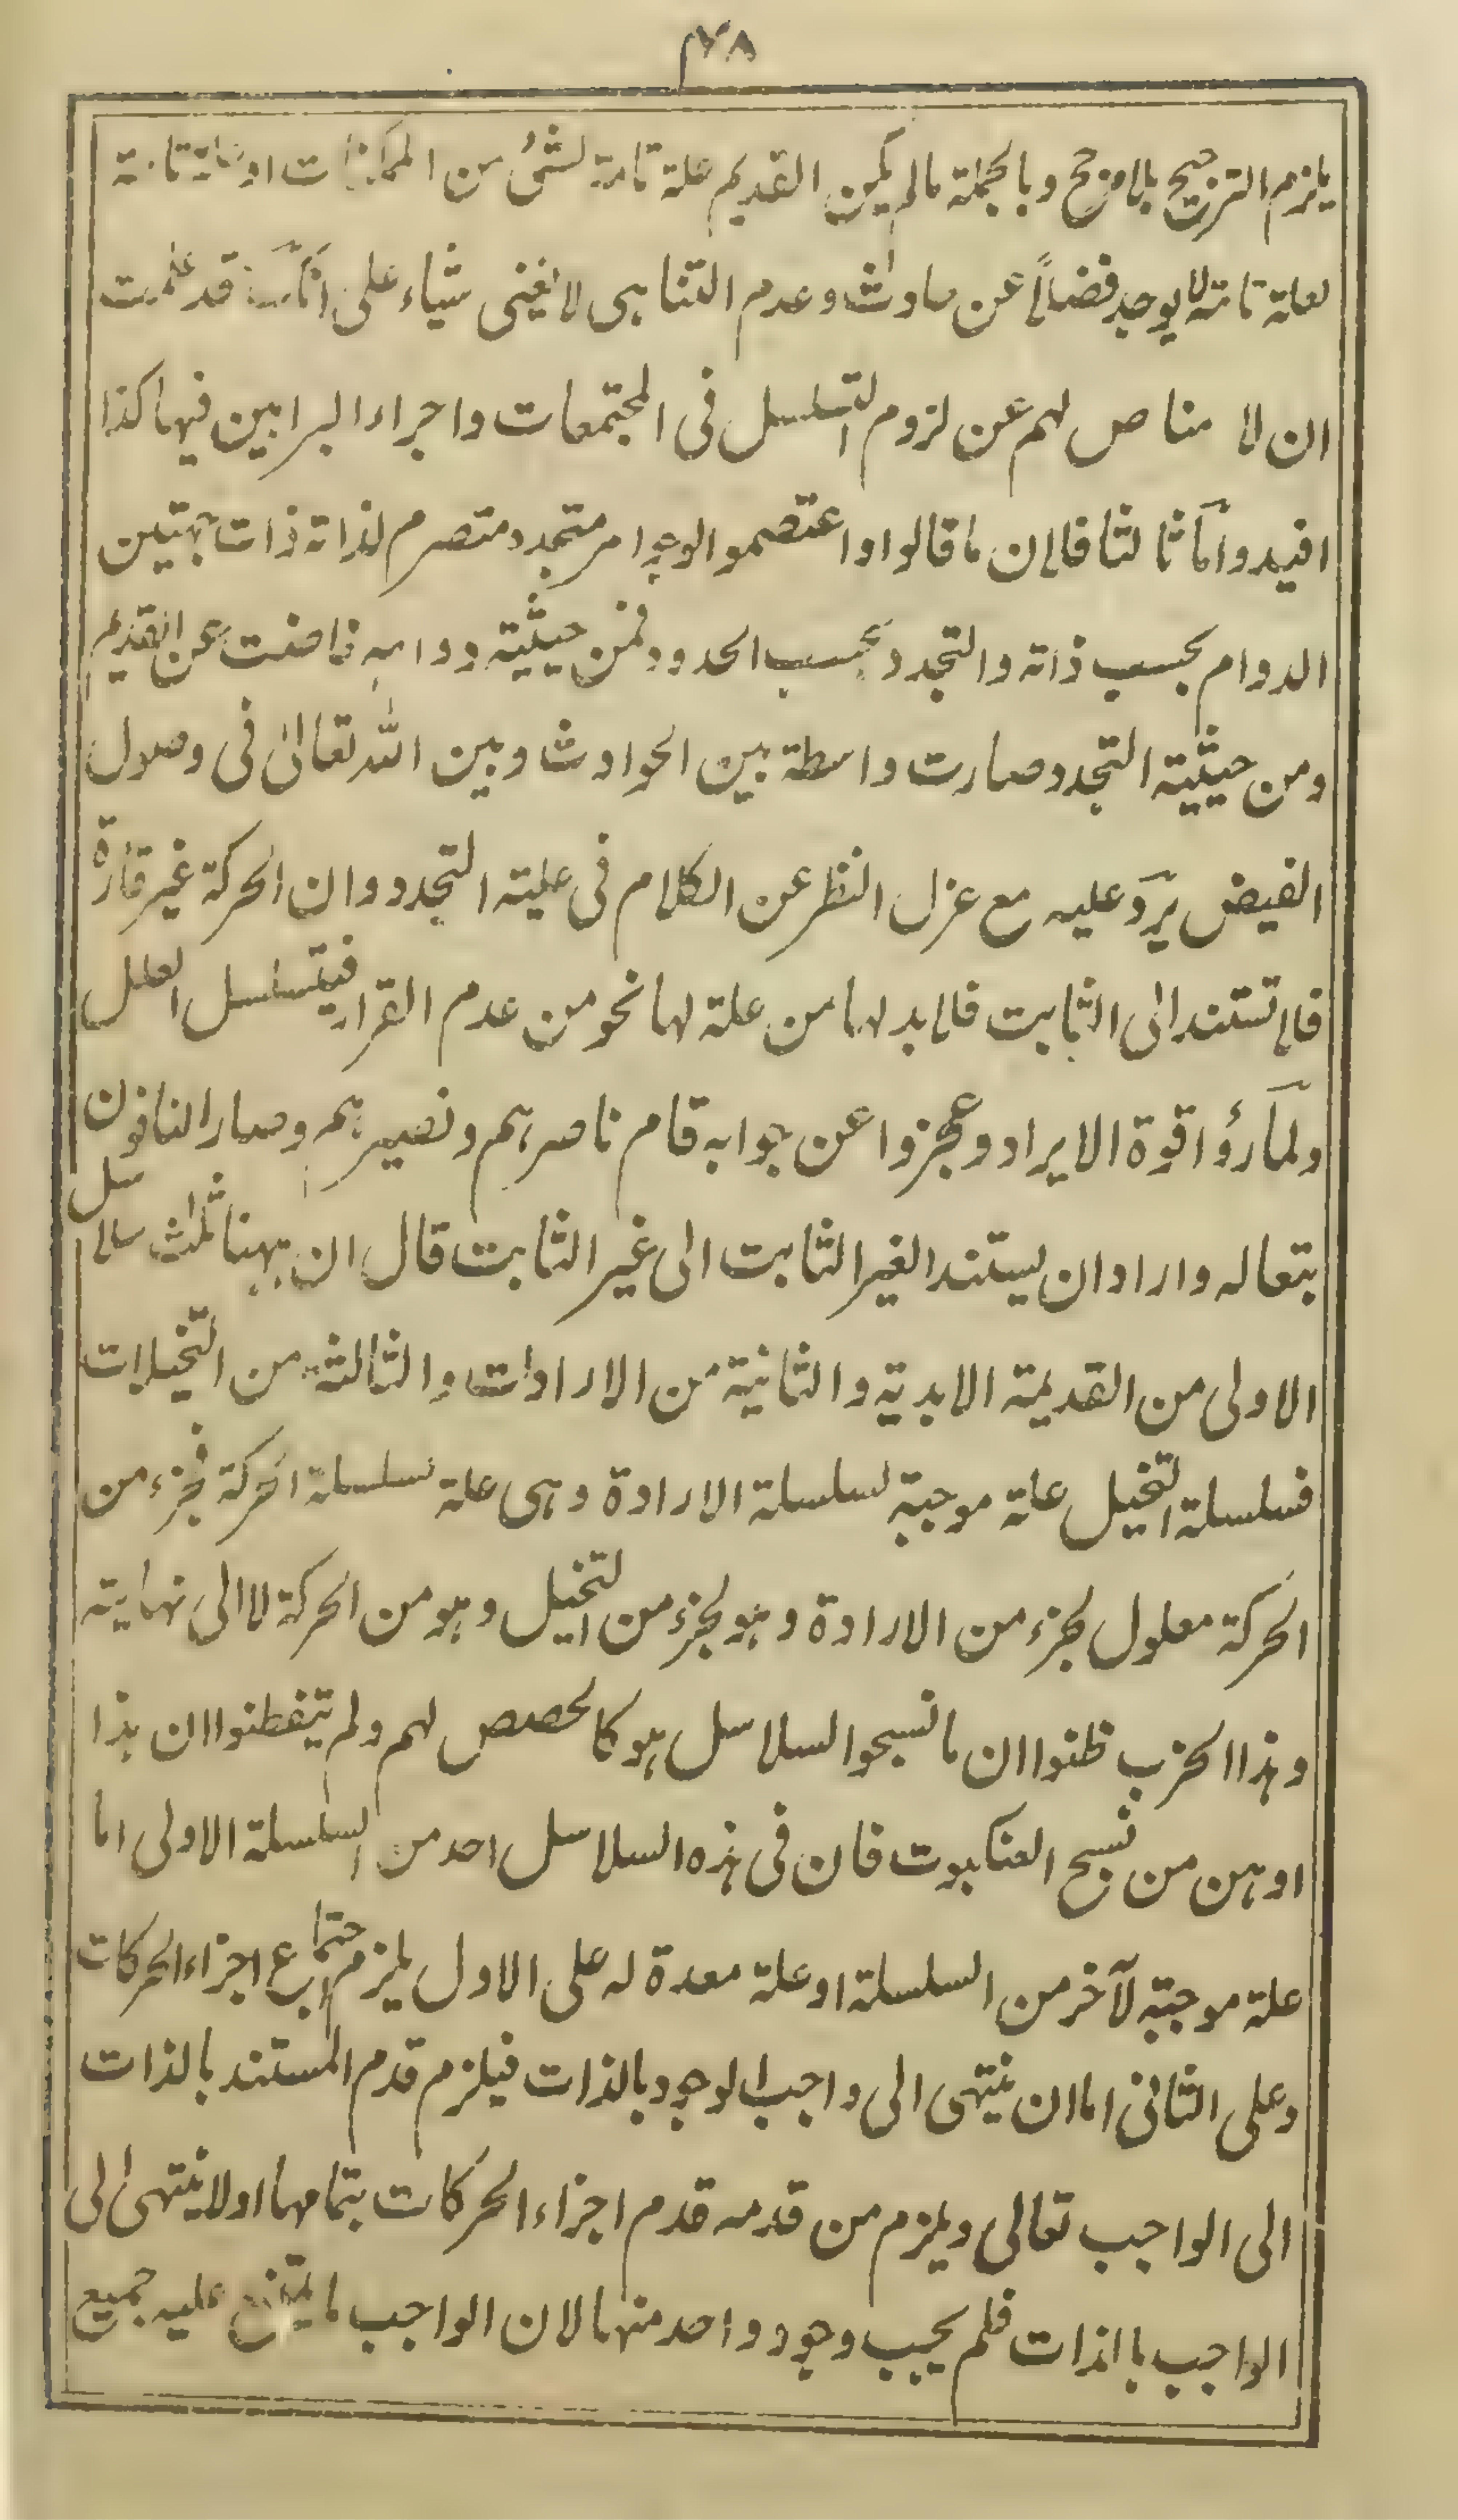 ٢٨
يلزم الترجيح بلامرجح وبالجملة مالم يكن القديم علة تامة لشئ من الممكنات او علة تامة
لعلة تامة لا يوجد فضلاً عن حادث وعدم التناهى لا يغنى شياء على انك قد علمت
ان لا مناص لهم عن لزوم التسلسل فى المجتمعات واجراء البراهين فيها كذا
افيد واما ثالثا فلان ما قالوا واعتصموا الوجود امر متجدد متصرم لذاته ذات جهتين
الدوام بحسب ذاته والتجدد بحسب الحدود فمن حيثية دوامه فاضت عن القديم
ومن حيثية التجدد صارت واسطة بين الحوادث وبين الله تعالى فى وصول
الفيض يرد عليه مع عزل النظر عن الكلام فى علية التجدد وان الحركة غير قارة
فلا تستند الى الثابت فلا بد لها من علة لها نحو من عدم القرار فيتسلسل العلل
ولما رؤا قوة الايراد وعجزوا عن جوابه قام ناصرهم ونصيرهم وصار النافون
بتعاله واراد ان يستند الغير الثابت الى غير الثابت قال ان ههنا ثلث سلاسل
الاولى من القديمة الابدية والثانية من الارادات والثالثة من التخيلات
فسلسلة التخيل علة موجبة لسلسلة الارادة وهى علة لسلسلة الحركة فجزء من
الحركة معلول لجزء من الارادة وهو لجزء من التخيل وهو من الحركة لا الى نهاية
وهذا الحزب ظنوا ان ما نسجوا السلاسل هو كالحصص لهم ولم يتفطنوا ان هذا
اوهن من نسج العنكبوت فان فى هذه السلاسل احد من السلسلة الاولى اما
علة موجبة لآخر من السلسلة او علة معدة له على الاول يلزم اجتماع اجزاء الحركات
وعلى الثانى اما ان ينتهى الى واجب الوجود بالذات فيلزم قدم المستند بالذات
الى الواجب تعالى ويلزم من قدمه قدم اجزاء الحركات بتمامها او لا ينتهى الى
الواجب بالذات فلم يجب وجود واحد منها لان الواجب ما يمتنع عليه جميع